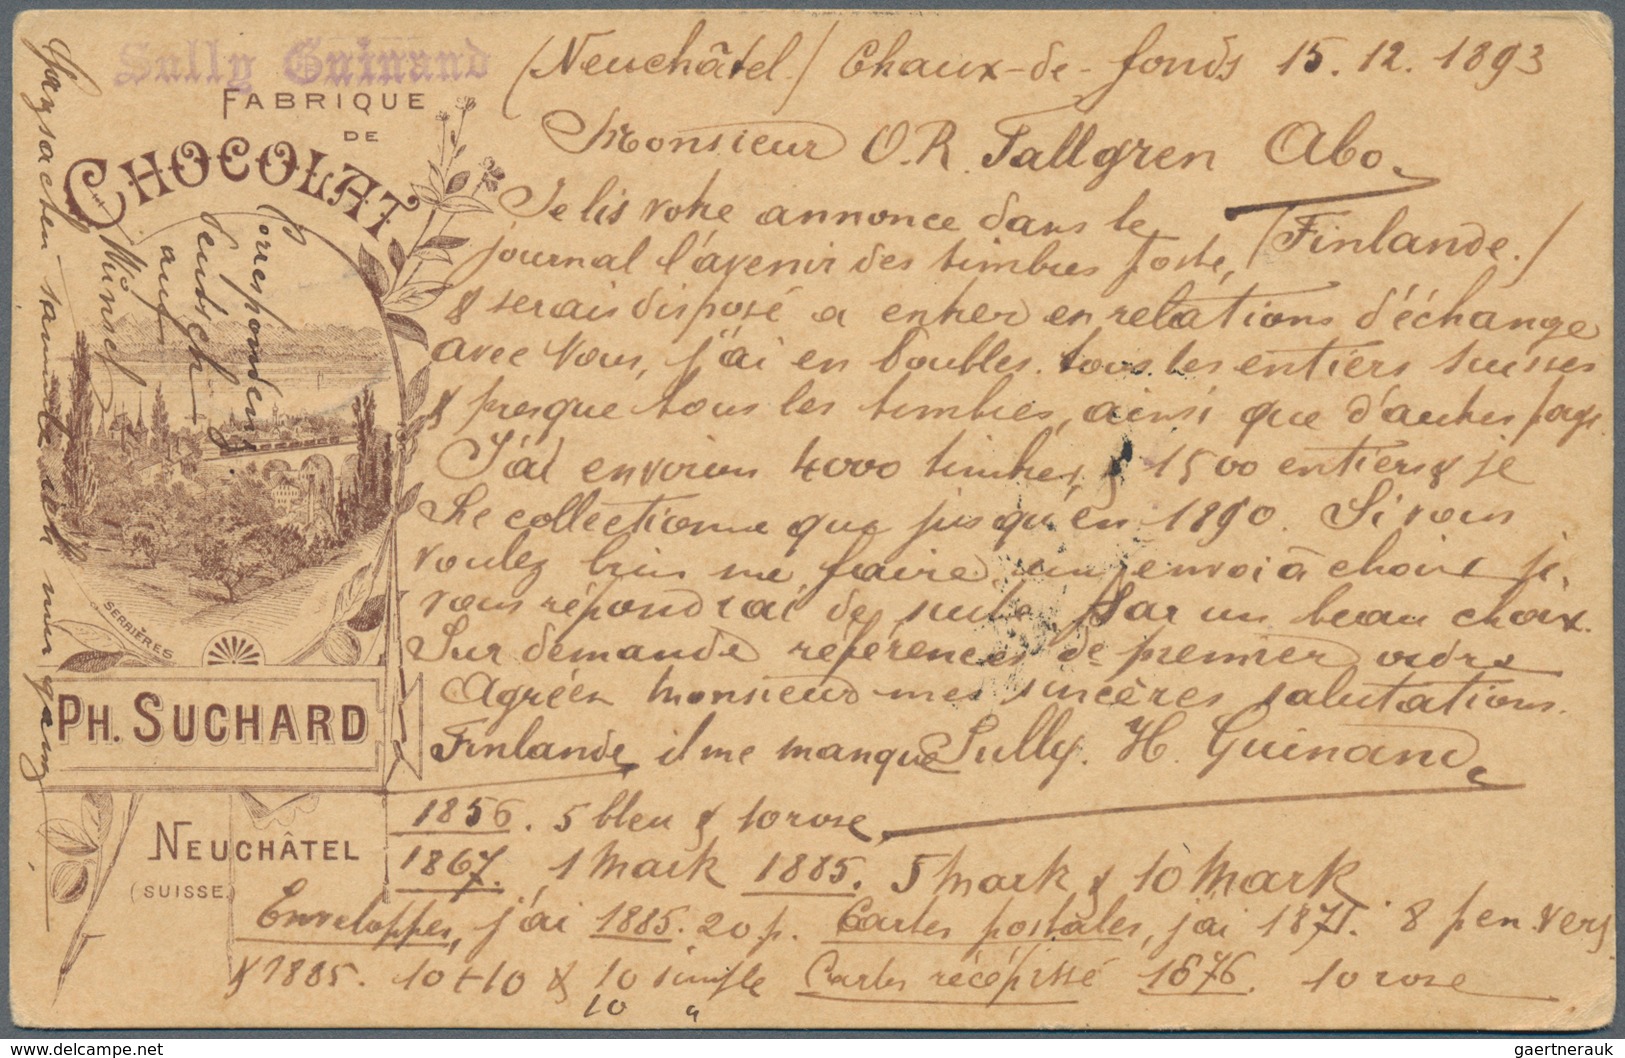 Sully Guinand
FABRIQUE
DE
CHOCOLAT
SERRIÈRES
PH. SUCHARD
NEUCHÂTEL
(SUISSE)
(Neuchâtel) Chaux-de-fonds 15.12.1893
Monsieur O.R. Tallgren Abo.
Je lis votre annonce dans le (Finlande.)
journal l'avenir des timbres poste,
& serais disposé a entrer en relations d'échange
avec vous, j'ai en doubles tous les entiers suisses
& presque tous les timbres, ainsi que d'autres pays.
J'ai environ 4000 timbres & 1500 entiers & je
ne collectionne que jusqu'en 1890. Si vous
voulez bien me faire un envoi à choix je
vous répondrai de suite par un beau choix.
Sur demande références de premier ordre
Agréez monsieur mes sincères salutations.
Finlande il me manque Sully. H. Guinand
1856. 5 bleu & 10 rose
1867. 1 Mark 1885. 5 Mark & 10 Mark
Enveloppes, j'ai 1885. 20 p. Cartes postales, j'ai 1871. 8 pen. vert
& 1885. 10+10 & 10 simple Cartes récépissé 1876. 10 rose
10 "
Correspondenz
deutsch
auf
Wünsch
Ganzsachen sammle ich nur ganz